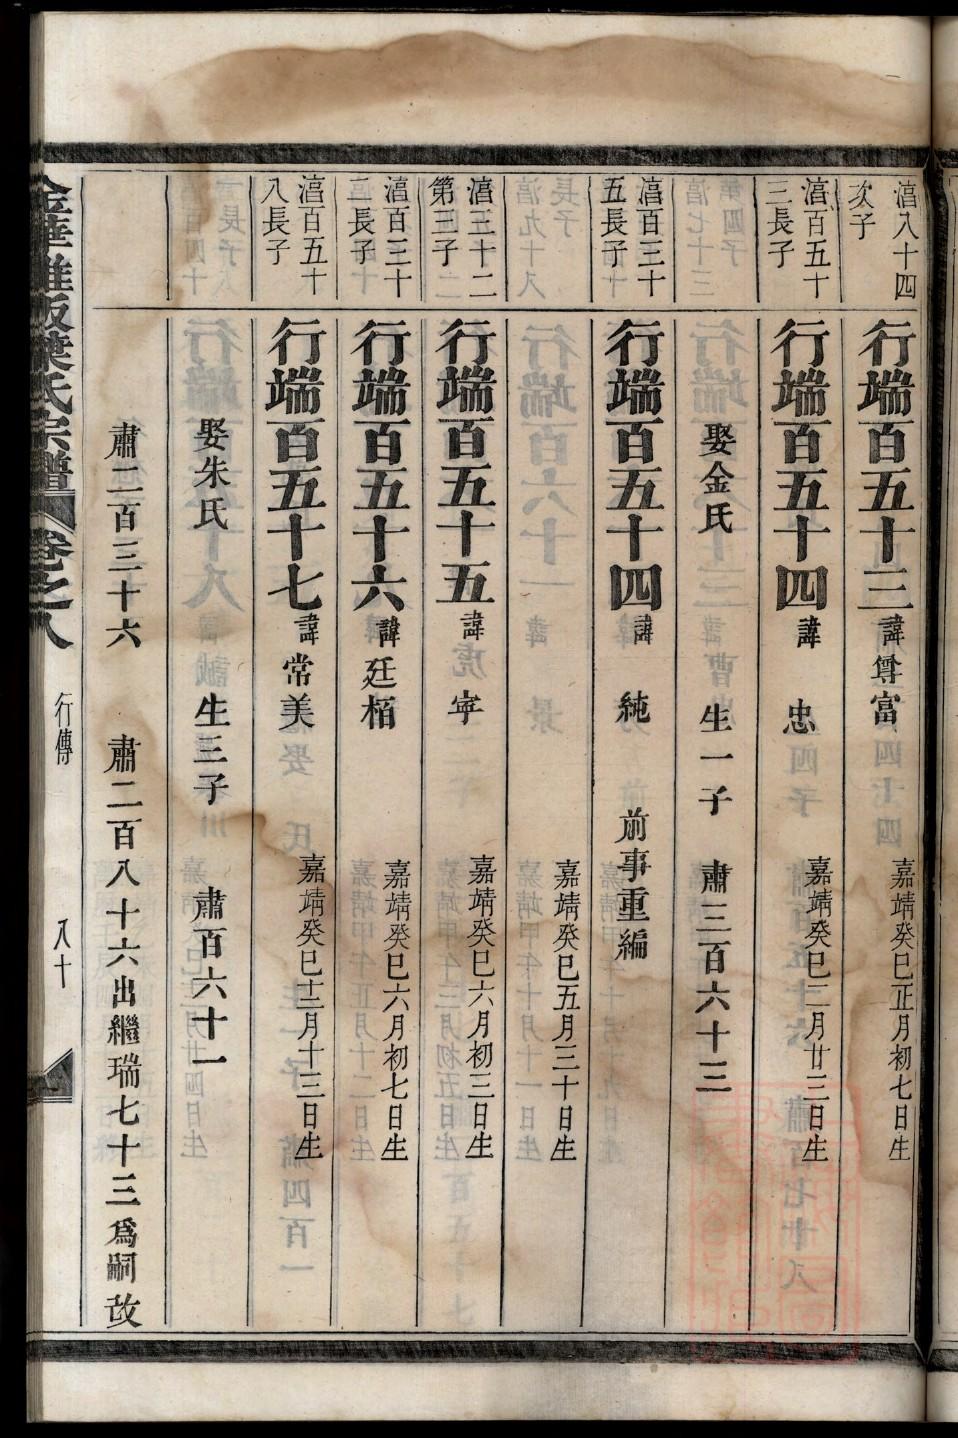 次子
行端百五十三 諱 尊富 嘉靖癸巳正月初七日生
三長子
行端百五十四 諱 忠 嘉靖癸巳二月廿三日生
娶金氏 生一子 肅三百六十三
五長子
行端百五十四 諱 純 前事重編
嘉靖癸巳五月三十日生
第三子
行端百五十五 諱 寕 嘉靖癸巳六月初三日生
二長子
行端百五十六 諱 廷栢 嘉靖癸巳六月初七日生
八長子
行端百五十七 諱 常美 嘉靖癸巳十二月十三日生
娶朱氏 生三子 肅百六十一
肅二百三十六 肅二百八十六出繼瑞七十三爲嗣故
葉氏宗譜 卷之八 行傳 八十